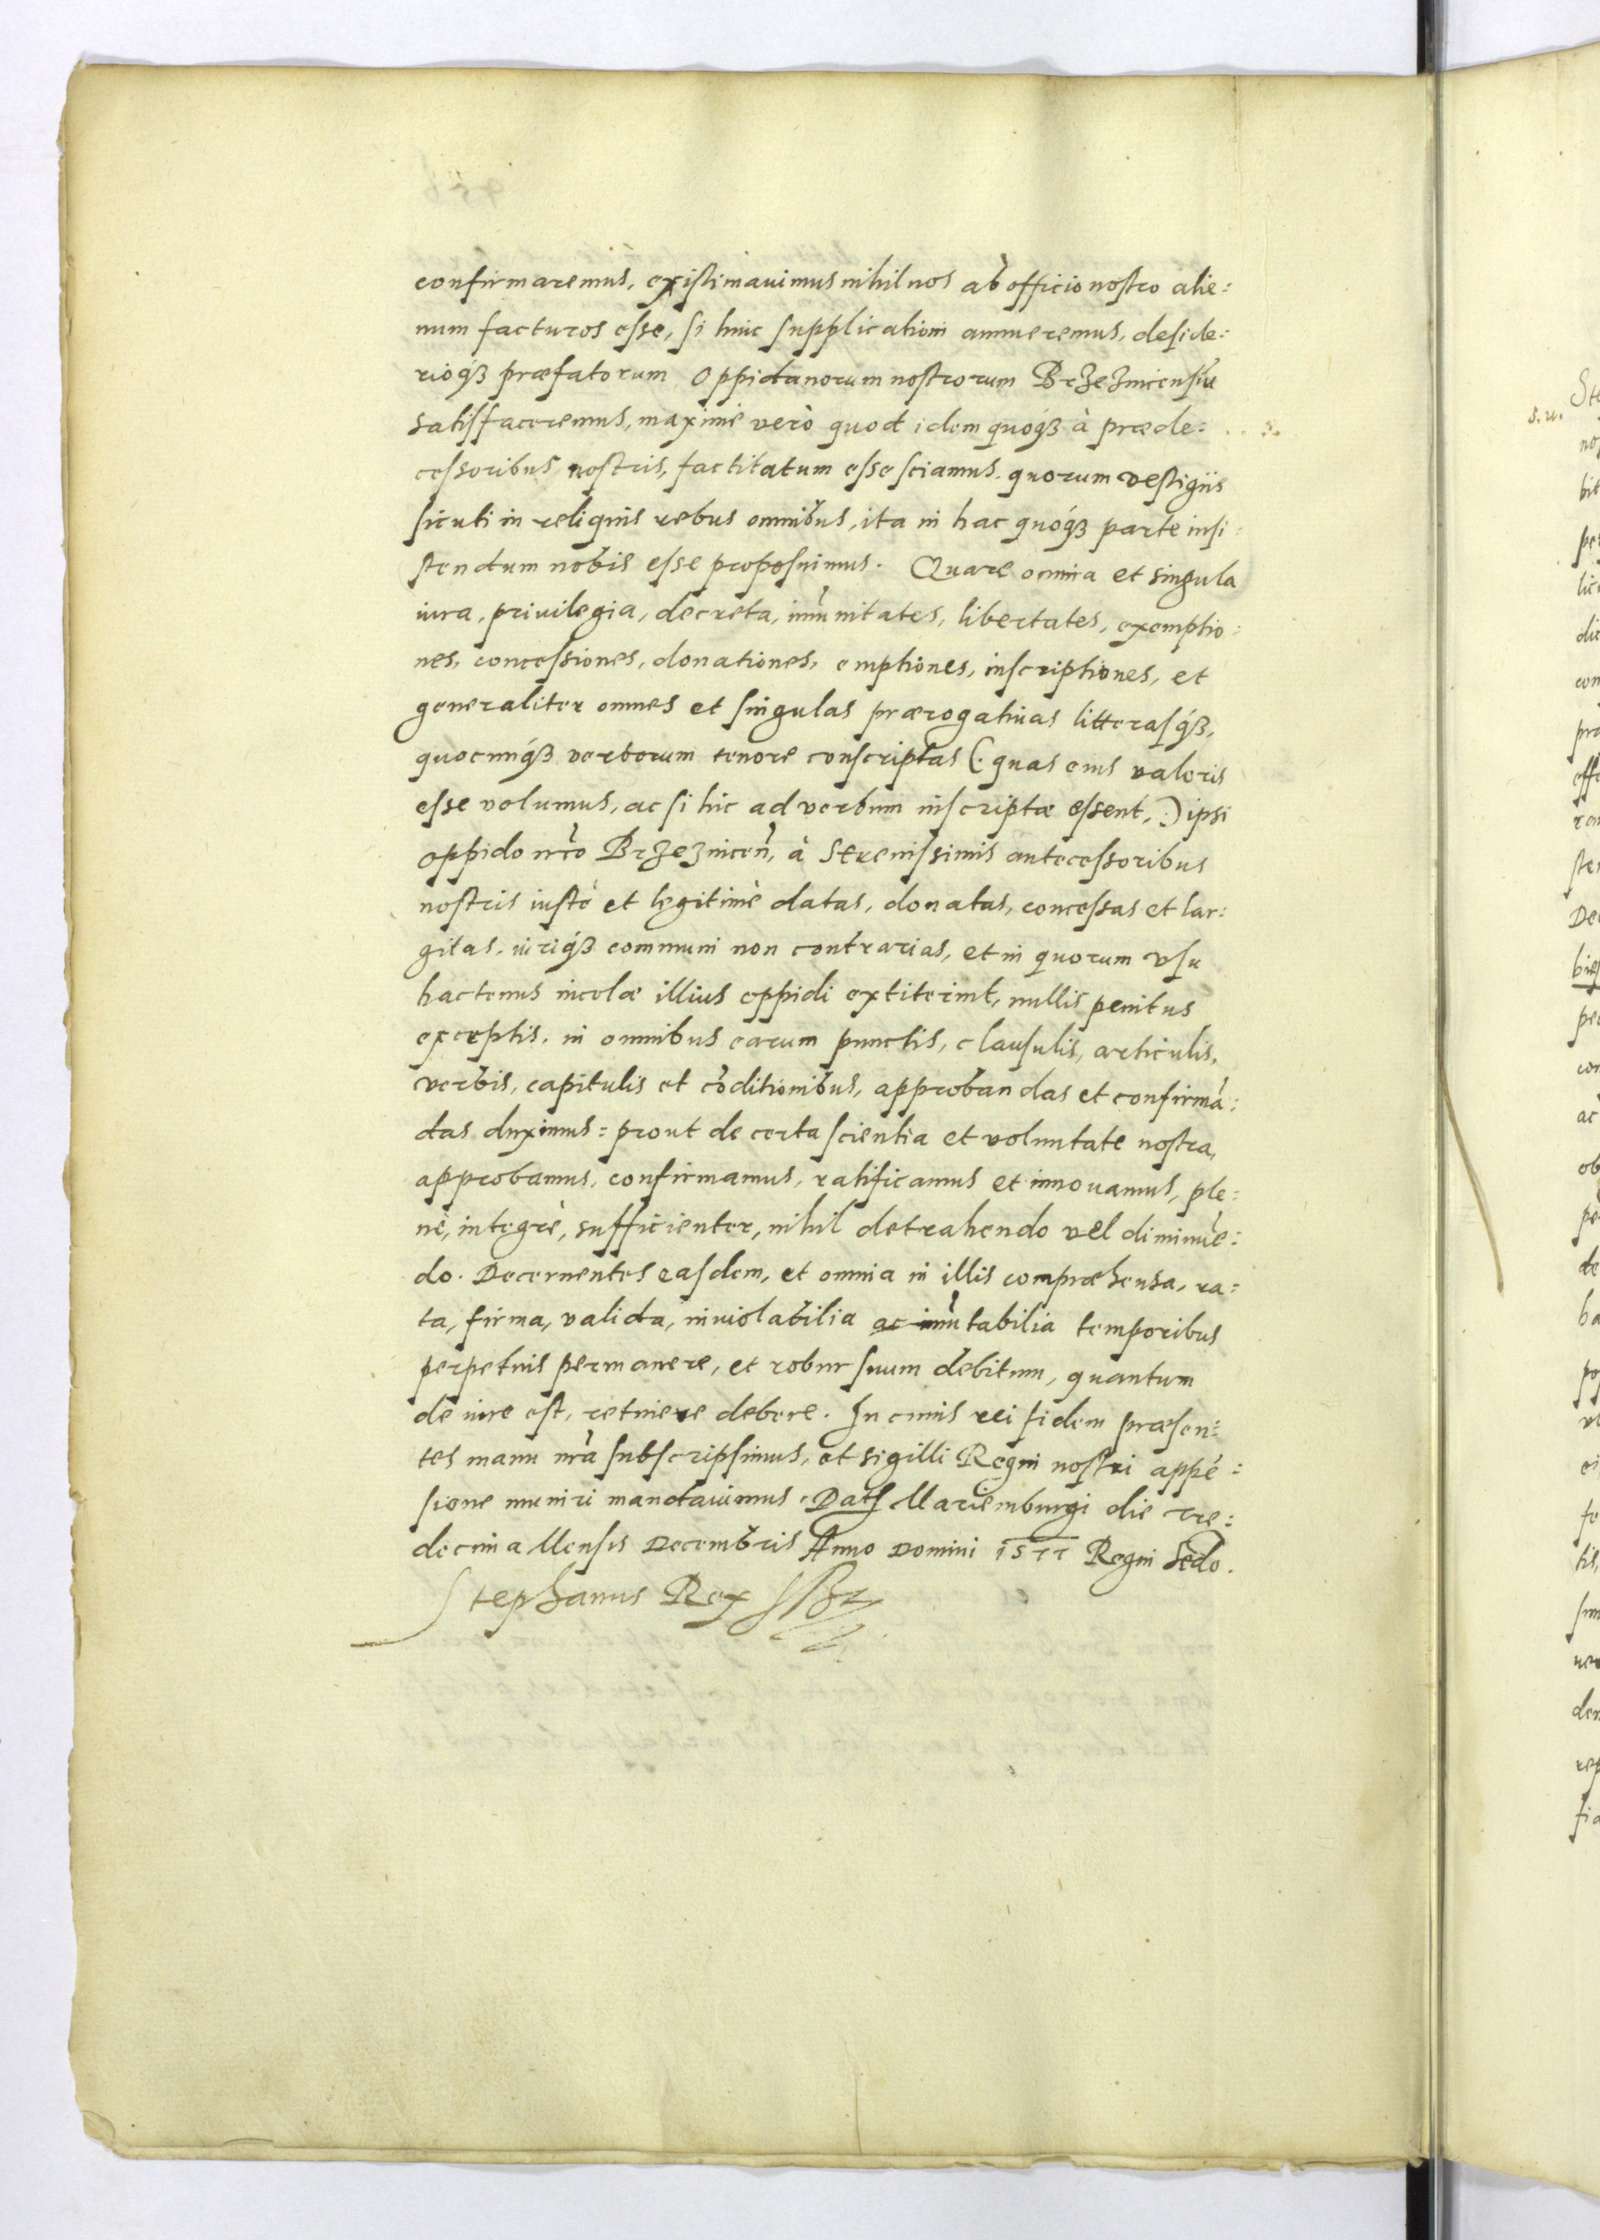 confirmaremus, existimauimus nihil nos ab officio nostro alie=
num facturos esse, si huic supplicationi annueremus, deside=
rioq́ꝫ præfatorum Oppidanorum nostrorum Brzeznicensiũ
satisfaceremus, maximè verò quod idem quoq́ꝫ à præde=
cessoribus nostris, factitatum esse sciamus. quorum vestigiis
sicuti in reliquis rebus omnibus, ita in hac quoq́ꝫ parte insi=
stendum nobis esse proposuimus. Quare omnia et singula
iura, priuilegia, decreta, im̃unitates, libertates, exemptio=
nes, concessiones, donationes, emptiones, inscriptiones, et
generaliter omnes et singulas prærogatiuas litterasq́ꝫ,
quocunq́ꝫ verborum tenore conscriptas (: quas eius valoris
esse volumus, ac si hic ad verbum inscriptæ essent, :) ipsi
oppido nr̃o Brzezniceñ, à Serenissimis antecessoribus
nostris iustè et legitimè datas, donatas, concessas et lar=
gitas, iuriq́ꝫ communi non contrarias, et in quorum vsu
hactenus incolæ illius oppidi extiterint, nullis penitus
exceptis, in omnibus earum punctis, clausulis, articulis,
verbis, capitulis et cõditionibus, approbandas et confirmã=
das duximus: prout de certa scientia et voluntate nostra,
approbamus, confirmamus, ratificamus et innouamus, ple=
nè, integrè, sufficienter, nihil detrahendo vel diminuẽ=
do. Decernentes easdem, et omnia in illis compræhensa, ra=
ta, firma, valida, inuiolabilia ac im̃utabilia temporibus
perpetuis permanere, et robur suum debitum, quantum
de iure est, retinere debere. In cuius rei fidem præsen=
tes manu nr̃a subscripsimus, et sigilli Regni nostri appẽ=
sione muniri mandauimus. Datꝭ Mariemburgi die tre=
decima Mensis Decembris Anno Domini 1577 Regni secdo.
Stephanus Rex